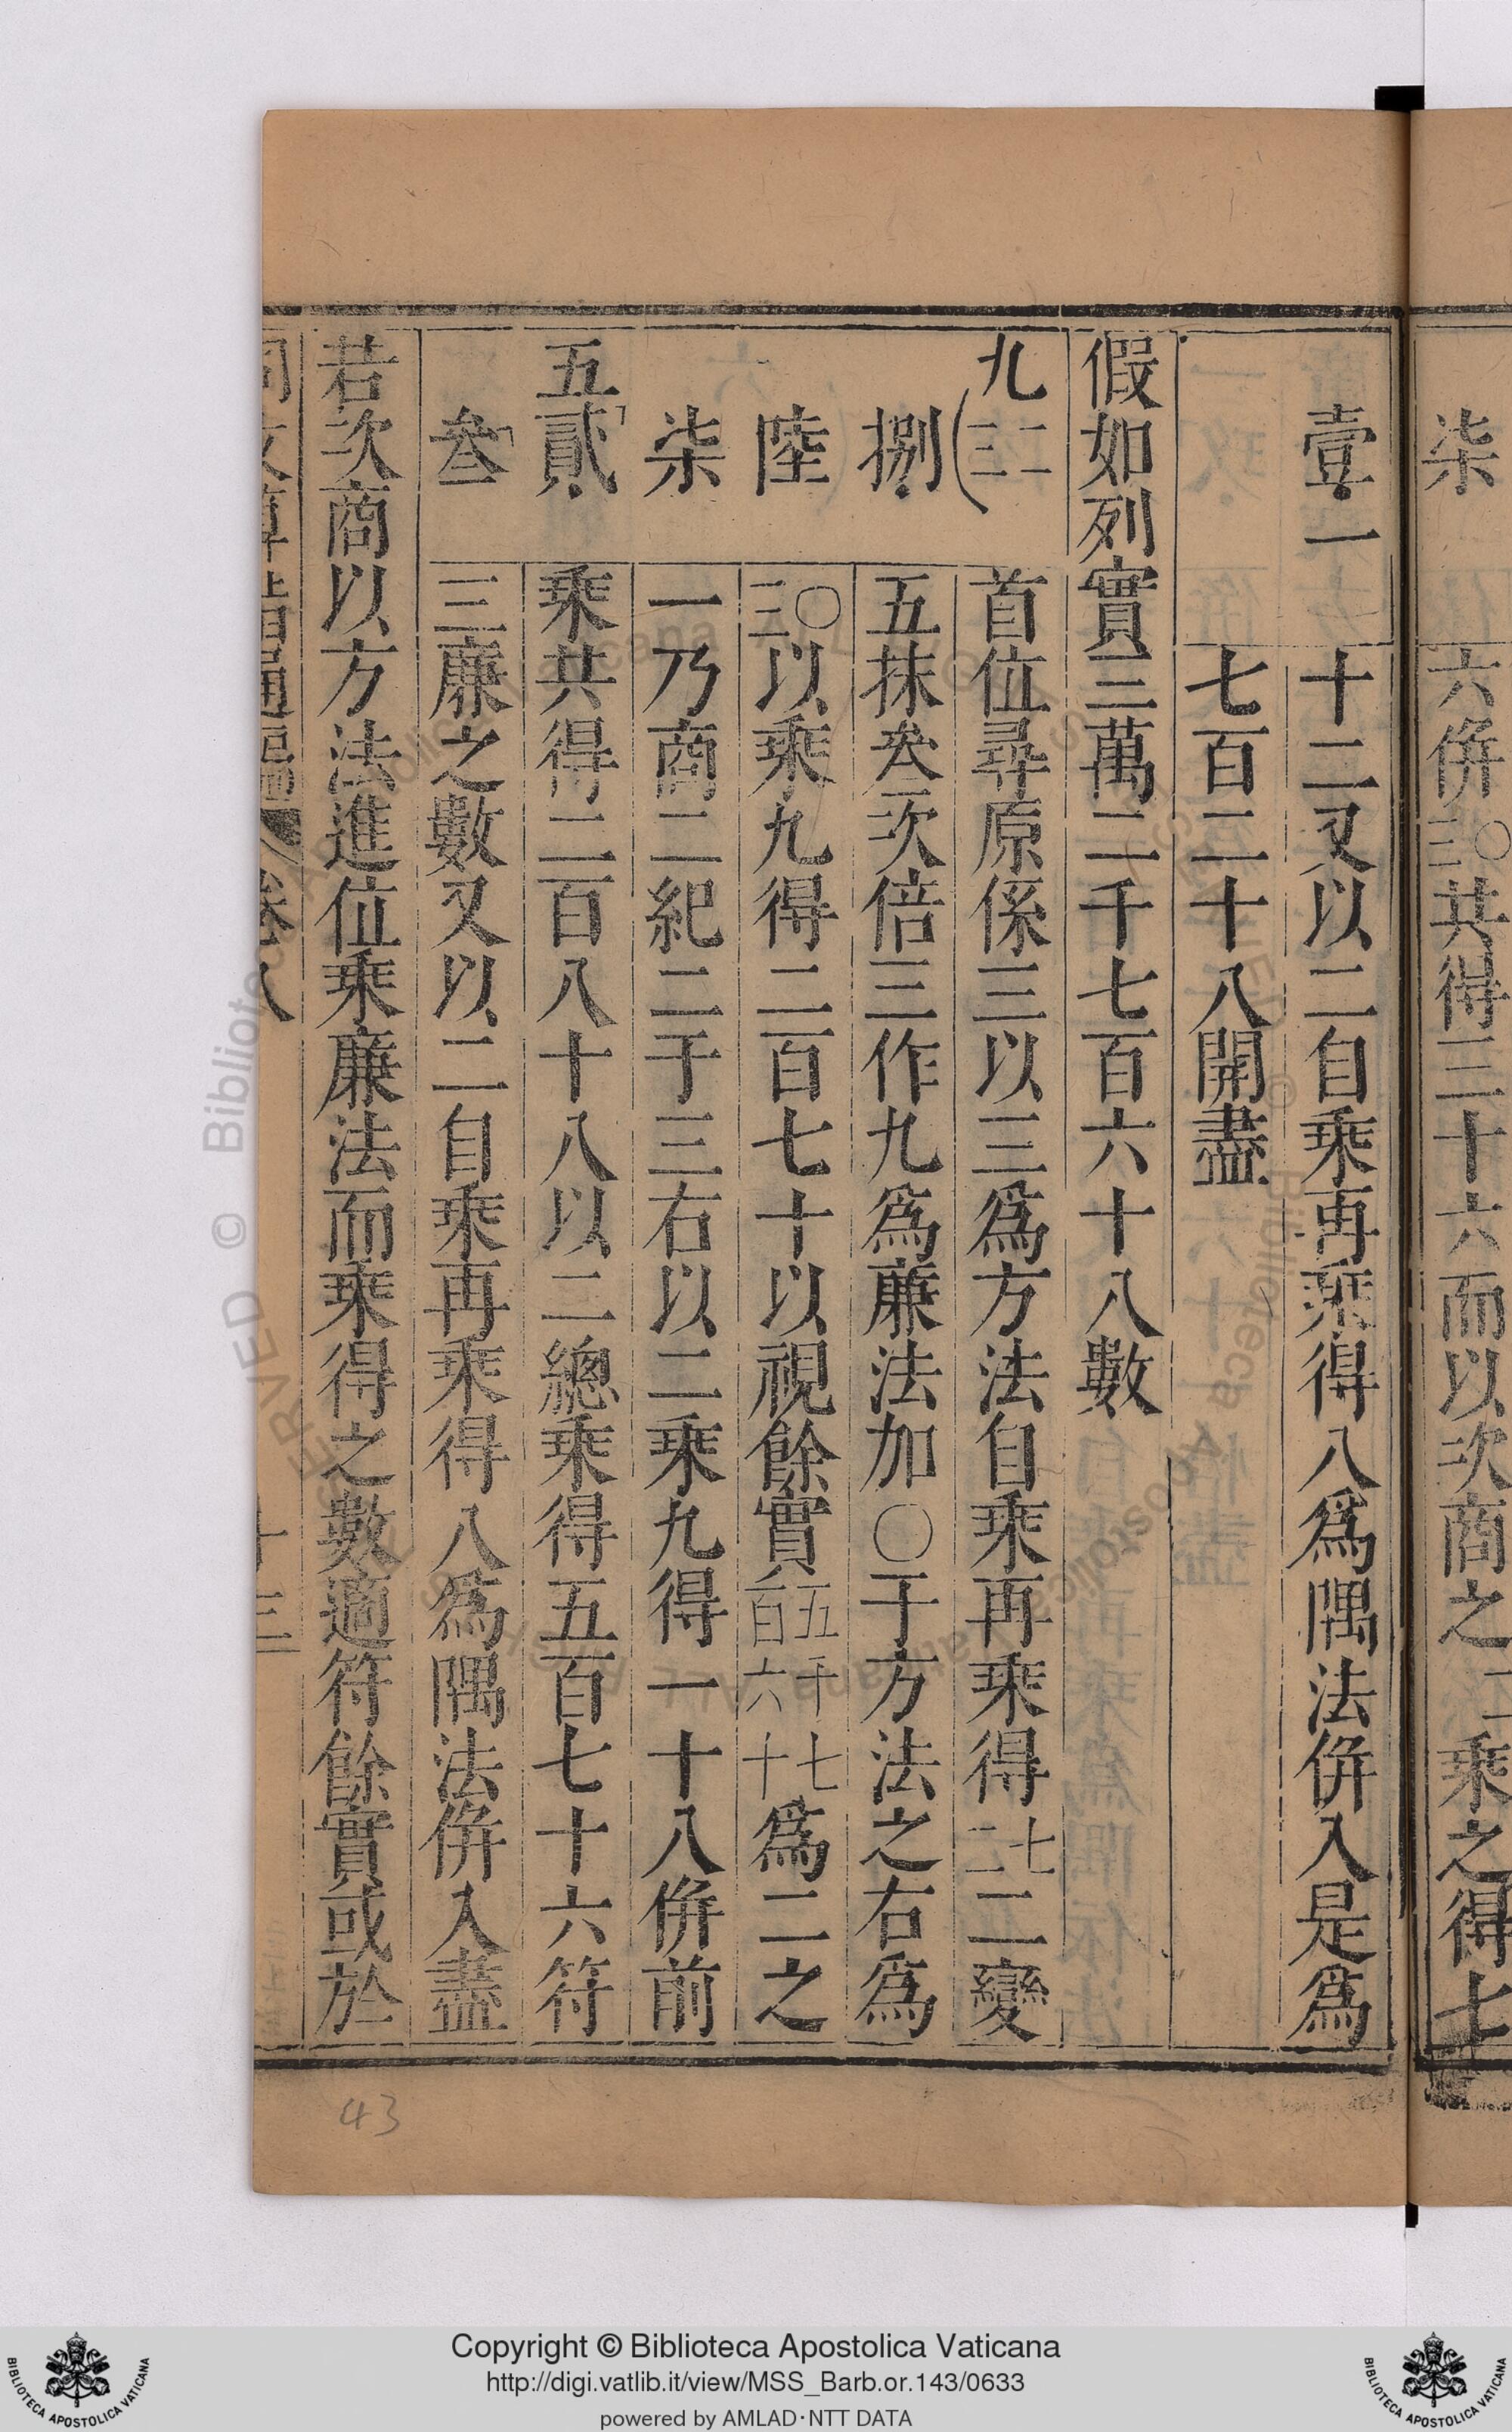 柒 六併〇三共得三十六而以次商之二乘之得七
壹一 十二又以二自乘再乘得八爲隅法併入是爲
七百二十八開盡
假如列實三萬二千七百六十八數
九(二三 首位尋原係三以三爲方法自乘再乘得七二二變
捌 五抹叁次倍三作九爲廉法加〇于方法之右爲
陸 〇三以乘九得二百七十以視餘實五千七百六十爲二之
柒 一乃商二紀二于三右以二乘九得一十八併前
五貳 乘共得二百八十八以二總乘得五百七十六符
叁 三廉之數又以二自乘再乘得八爲隅法併入盡
若次商以方法進位乘廉法而乘得之數適符餘實或於
同文算指通編 卷八 十三
43
© Biblioteca Apostolica Vaticana
Copyright © Biblioteca Apostolica Vaticana
http://digi.vatlib.it/view/MSS_Barb.or.143/0633
powered by AMLAD·NTT DATA
BIBLIOTECA APOSTOLICA VATICANA
BIBLIOTECA APOSTOLICA VATICANA